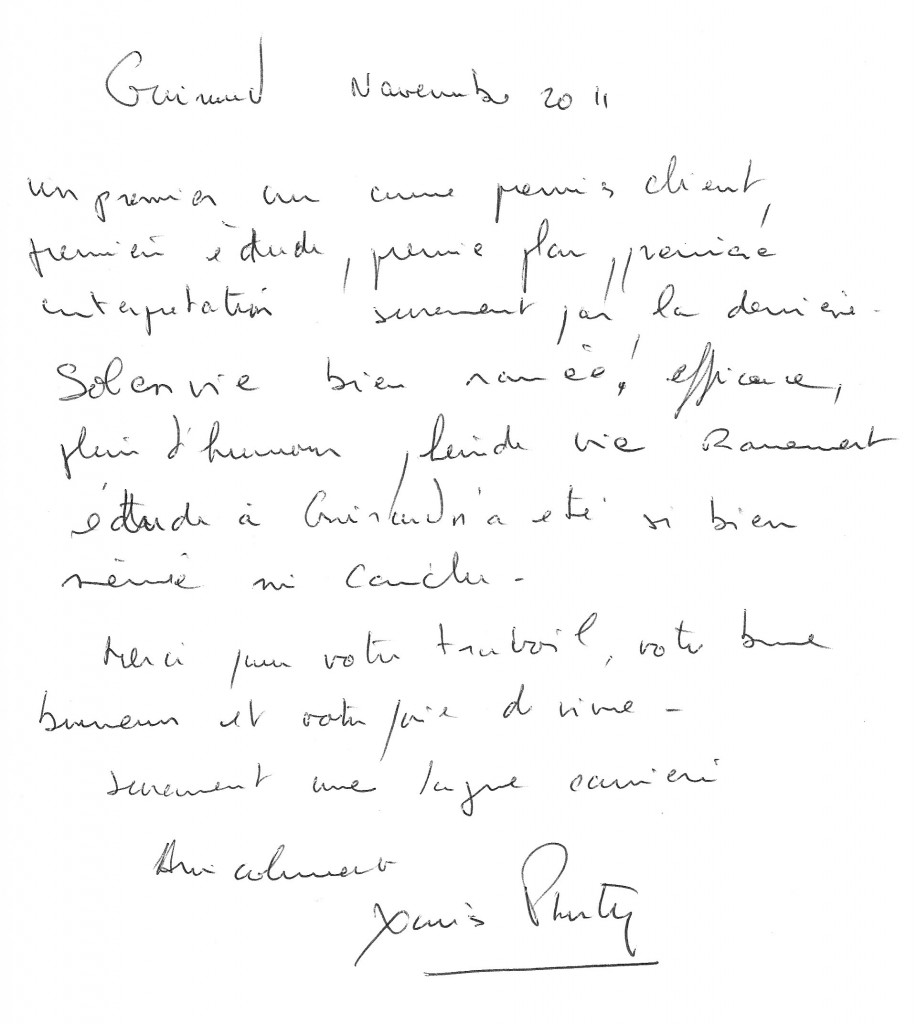 Guiraud Novembre 2011
un premier an comme premier client,
première étude, premier plan, première
interprétation surement pas la dernière.
Solenvie bien nommée, efficace,
plein d'humour, plein de vie Rarement
étude à Guiraud n'a été si bien
menée ni conclu -
Merci pour votre travail, votre bonne
humeur et votre joie de vivre -
surement une longue carrière
Amicalement
Xavier